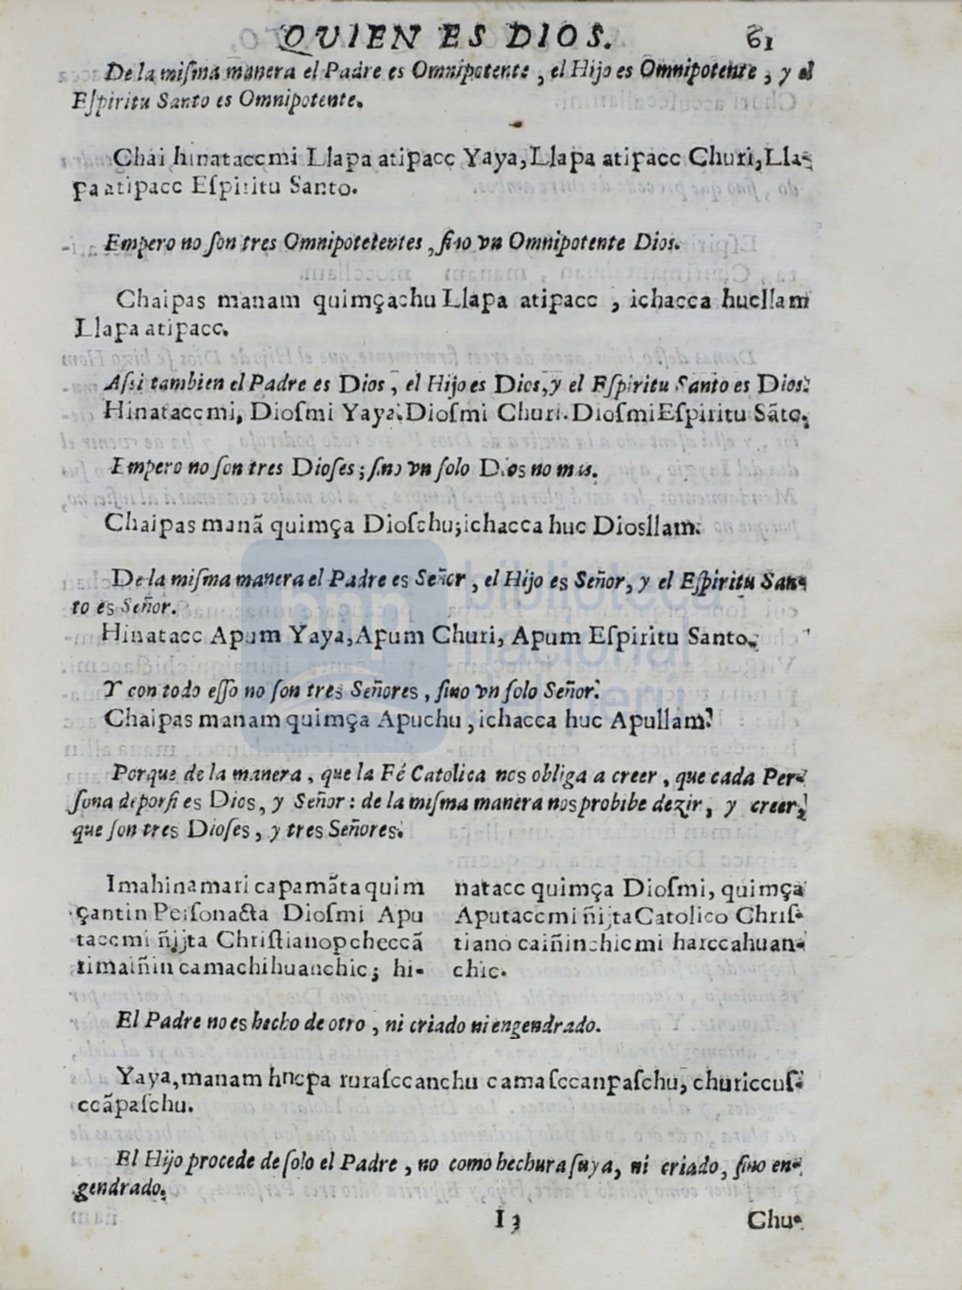 QVIEN ES DIOS. 61
De la miſma manera el Padre es Omnipotente, el Hijo es Omnipotente, y el
Eſpiritu Santo es Omnipotente.
Chai hinataccmi Llapa atipacc Yaya, Llapa atipacc Churi, Lla-
pa atipacc Eſpiritu Santo.
Empero no ſon tres Omnipotetentes, ſino vn Omnipotente Dios.
Chaipas manam quimçachu Llapa atipacc, ichacca hucllam
Llapa atipacc.
Aſsi tambien el Padre es Dios, el Hijo es Dios, y el Eſpiritu Santo es Dios.
Hinataccmi, Dioſmi Yaya. Dioſmi Churi. Dioſmi Eſpiritu Sãto.
Empero no ſon tres Dioſes; ſino vn ſolo Dios no mas.
Chaipas manã quimça Dioſchu; ichacca huc Diosllam.
De la miſma manera el Padre es Señor, el Hijo es Señor, y el Eſpiritu San-
to es Señor.
Hinatacc Apum Yaya, Apum Churi, Apum Eſpiritu Santo.
Y con todo eſſo no ſon tres Señores, ſino vn ſolo Señor.
Chaipas manam quimça Apuchu, ichacca huc Apullam.
Porque de la manera, que la Fé Catolica nos obliga a creer, que cada Per-
ſona de porſi es Dios, y Señor: de la miſma manera nos probibe dezir, y creer,
que ſon tres Dioſes, y tres Señores.
Imahinamari capamãta quim
çantin Perſonacta Dioſmi Apu
taccmi ñijta Chriſtianop checcã
iimaiñin camachihuanchic; hi-
natacc quimça Dioſmi, quimça
Aputaccmi ñijta Catolico Chriſ-
tiano caiñinchicmi harccahuan-
chic.
El Padre no es hecho de otro, ni criado ni engendrado.
Yaya, manam hucpa ruraſccanchu camaſccanpaſchu, churiccuſ-
ccãpaſchu.
El Hijo procede de ſolo el Padre, no como hechura ſuya, ni criado, ſino en-
gendrado.
I 3 Chu-
biblioteca
nacional
del perú